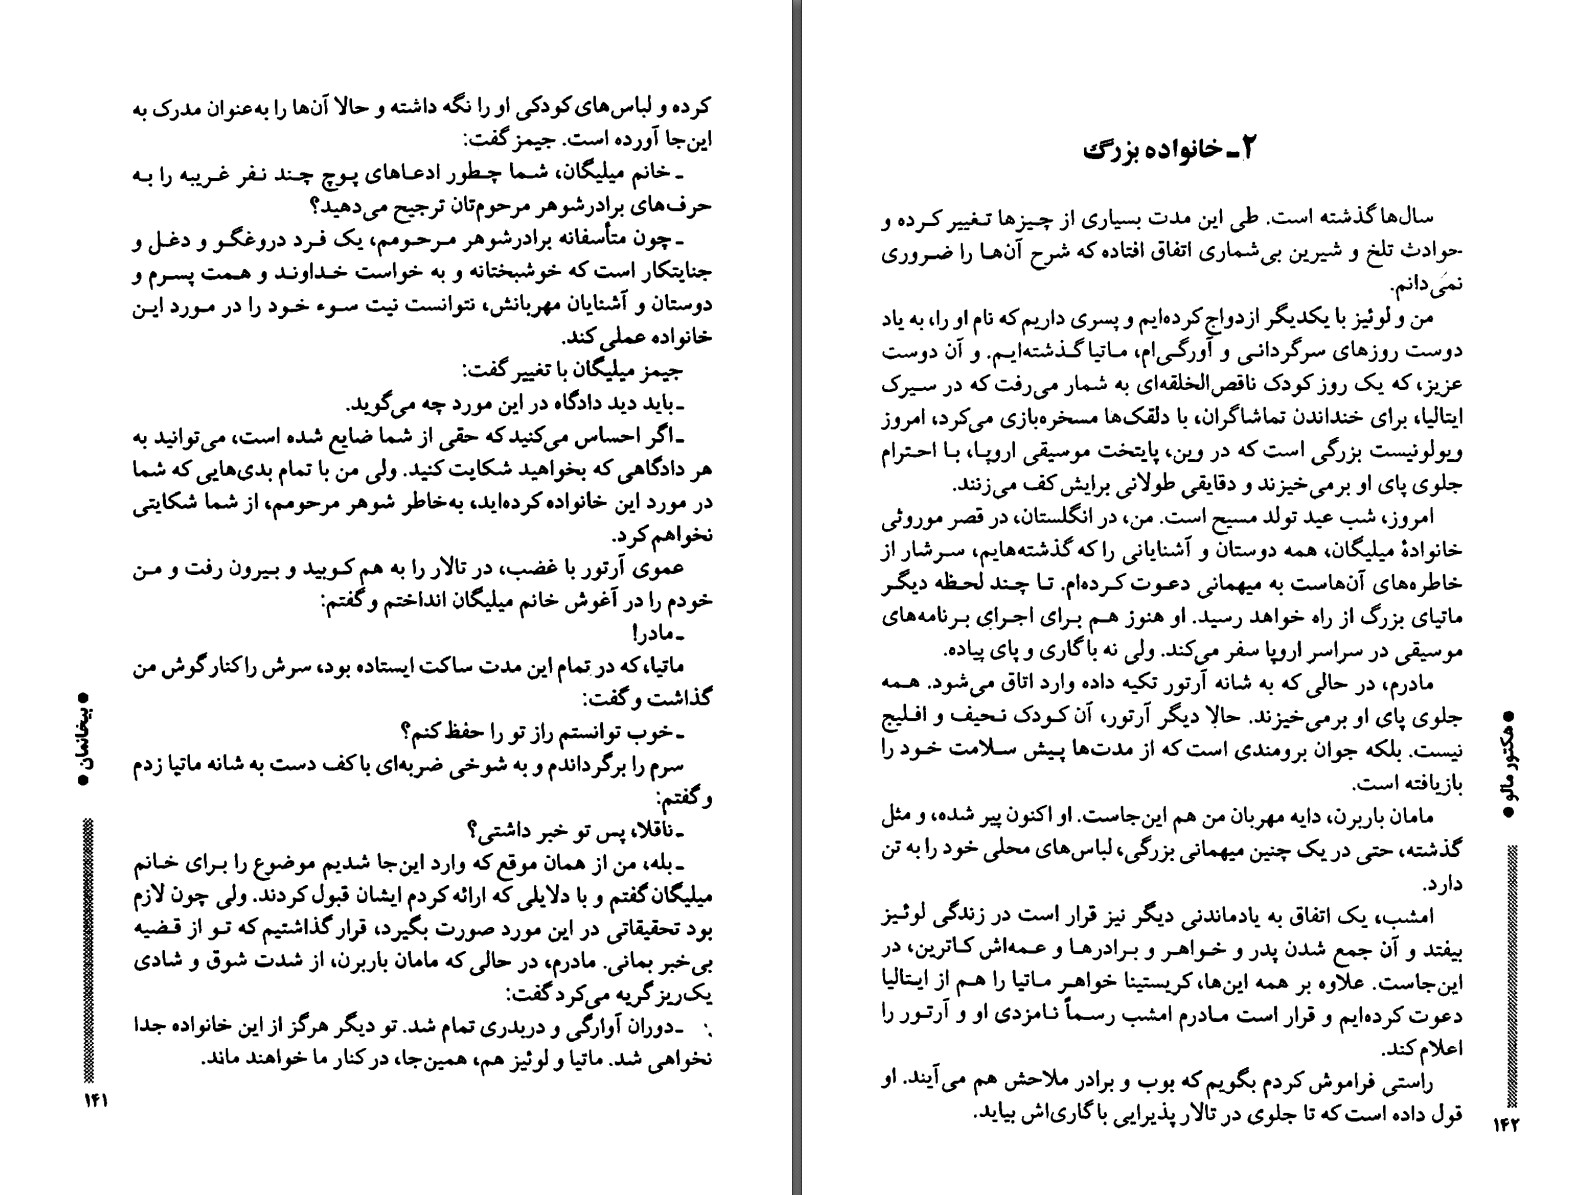 کرده و لباس‌های کودکی او را نگه داشته و حالا آن‌ها را به‌عنوان مدرک به
این‌جا آورده است. جیمز گفت:
ـ خانم میلیگان، شما چطور ادعاهای پوچ چند نفر غریبه را به
حرف‌های برادرشوهر مرحوم‌تان ترجیح می‌دهید؟
ـ چون متأسفانه برادرشوهر مرحومم، یک فرد دروغگو و دغل و
جنایتکار است که خوشبختانه و به خواست خداوند و همت پسرم و
دوستان و آشنایان مهربانش، نتوانست نیت سوء خود را در مورد این
خانواده عملی کند.
جیمز میلیگان با تغییر گفت:
ـ باید دید دادگاه در این مورد چه می‌گوید.
ـ اگر احساس می‌کنید که حقی از شما ضایع شده است، می‌توانید به
هر دادگاهی که بخواهید شکایت کنید. ولی من با تمام بدی‌هایی که شما
در مورد این خانواده کرده‌اید، به‌خاطر شوهر مرحومم، از شما شکایتی
نخواهم کرد.
عموی آرتور با غضب، در تالار را به هم کوبید و بیرون رفت و من
خودم را در آغوش خانم میلیگان انداختم و گفتم:
ـ مادر!
ماتیا، که در تمام این مدت ساکت ایستاده بود، سرش را کنار گوش من
گذاشت و گفت:
ـ خوب توانستم راز تو را حفظ کنم؟
سرم را برگرداندم و به شوخی ضربه‌ای با کف دست به شانه ماتیا زدم
و گفتم:
ـ ناقلا، پس تو خبر داشتی؟
ـ بله، من از همان موقع که وارد این‌جا شدیم موضوع را برای خانم
میلیگان گفتم و با دلایلی که ارائه کردم ایشان قبول کردند. ولی چون لازم
بود تحقیقاتی در این مورد صورت بگیرد، قرار گذاشتیم که تو از قضیه
بی‌خبر بمانی. مادرم، در حالی که مامان باربرن، از شدت شوق و شادی
یک‌ریز گریه می‌کرد گفت:
ـ دوران آوارگی و دربدری تمام شد. تو دیگر هرگز از این خانواده جدا
نخواهی شد. ماتیا و لوئیز هم، همین‌جا، در کنار ما خواهند ماند.
● بیخانمان ●
۱۴۱
۲ـ خانواده بزرگ
سال‌ها گذشته است. طی این مدت بسیاری از چیزها تغییر کرده و
حوادث تلخ و شیرین بی‌شماری اتفاق افتاده که شرح آن‌ها را ضروری
نمی‌دانم.
من و لوئیز با یکدیگر ازدواج کرده‌ایم و پسری داریم که نام او را، به یاد
دوست روزهای سرگردانی و آورگی‌ام، ماتیا گذشته‌ایم. و آن دوست
عزیز، که یک روز کودک ناقص‌الخلقه‌ای به شمار می‌رفت که در سیرک
ایتالیا، برای خنداندن تماشاگران، با دلقک‌ها مسخره‌بازی می‌کرد، امروز
ویولونیست بزرگی است که در وین، پایتخت موسیقی اروپا، با احترام
جلوی پای او برمی‌خیزند و دقایقی طولانی برایش کف می‌زنند.
امروز، شب عید تولد مسیح است. من، در انگلستان، در قصر موروثی
خانوادهٔ میلیگان، همه دوستان و آشنایانی را که گذشته‌هایم، سرشار از
خاطره‌های آن‌هاست به میهمانی دعوت کرده‌ام. تا چند لحظه دیگر
ماتیای بزرگ از راه خواهد رسید. او هنوز هم برای اجرای برنامه‌های
موسیقی در سراسر اروپا سفر می‌کند. ولی نه با گاری و پای پیاده.
مادرم، در حالی که به شانه آرتور تکیه داده وارد اتاق می‌شود. همه
جلوی پای او برمی‌خیزند. حالا دیگر آرتور، آن کودک نحیف و افلیج
نیست. بلکه جوان برومندی است که از مدت‌ها پیش سلامت خود را
بازیافته است.
مامان باربرن، دایه مهربان من هم این‌جاست. او اکنون پیر شده، و مثل
گذشته، حتی در یک چنین میهمانی بزرگی، لباس‌های محلی خود را به تن
دارد.
امشب، یک اتفاق به یادماندنی دیگر نیز قرار است در زندگی لوئیز
بیفتد و آن جمع شدن پدر و خواهر و برادرها و عمه‌اش کاترین، در
این‌جاست. علاوه بر همه این‌ها، کریستینا خواهر ماتیا را هم از ایتالیا
دعوت کرده‌ایم و قرار است مادرم امشب رسماً نامزدی او و آرتور را
اعلام کند.
راستی فراموش کردم بگویم که بوب و برادر ملاحش هم می‌آیند. او
قول داده است که تا جلوی در تالار پذیرایی با گاری‌اش بیاید.
● هکتور مالو ●
۱۴۲